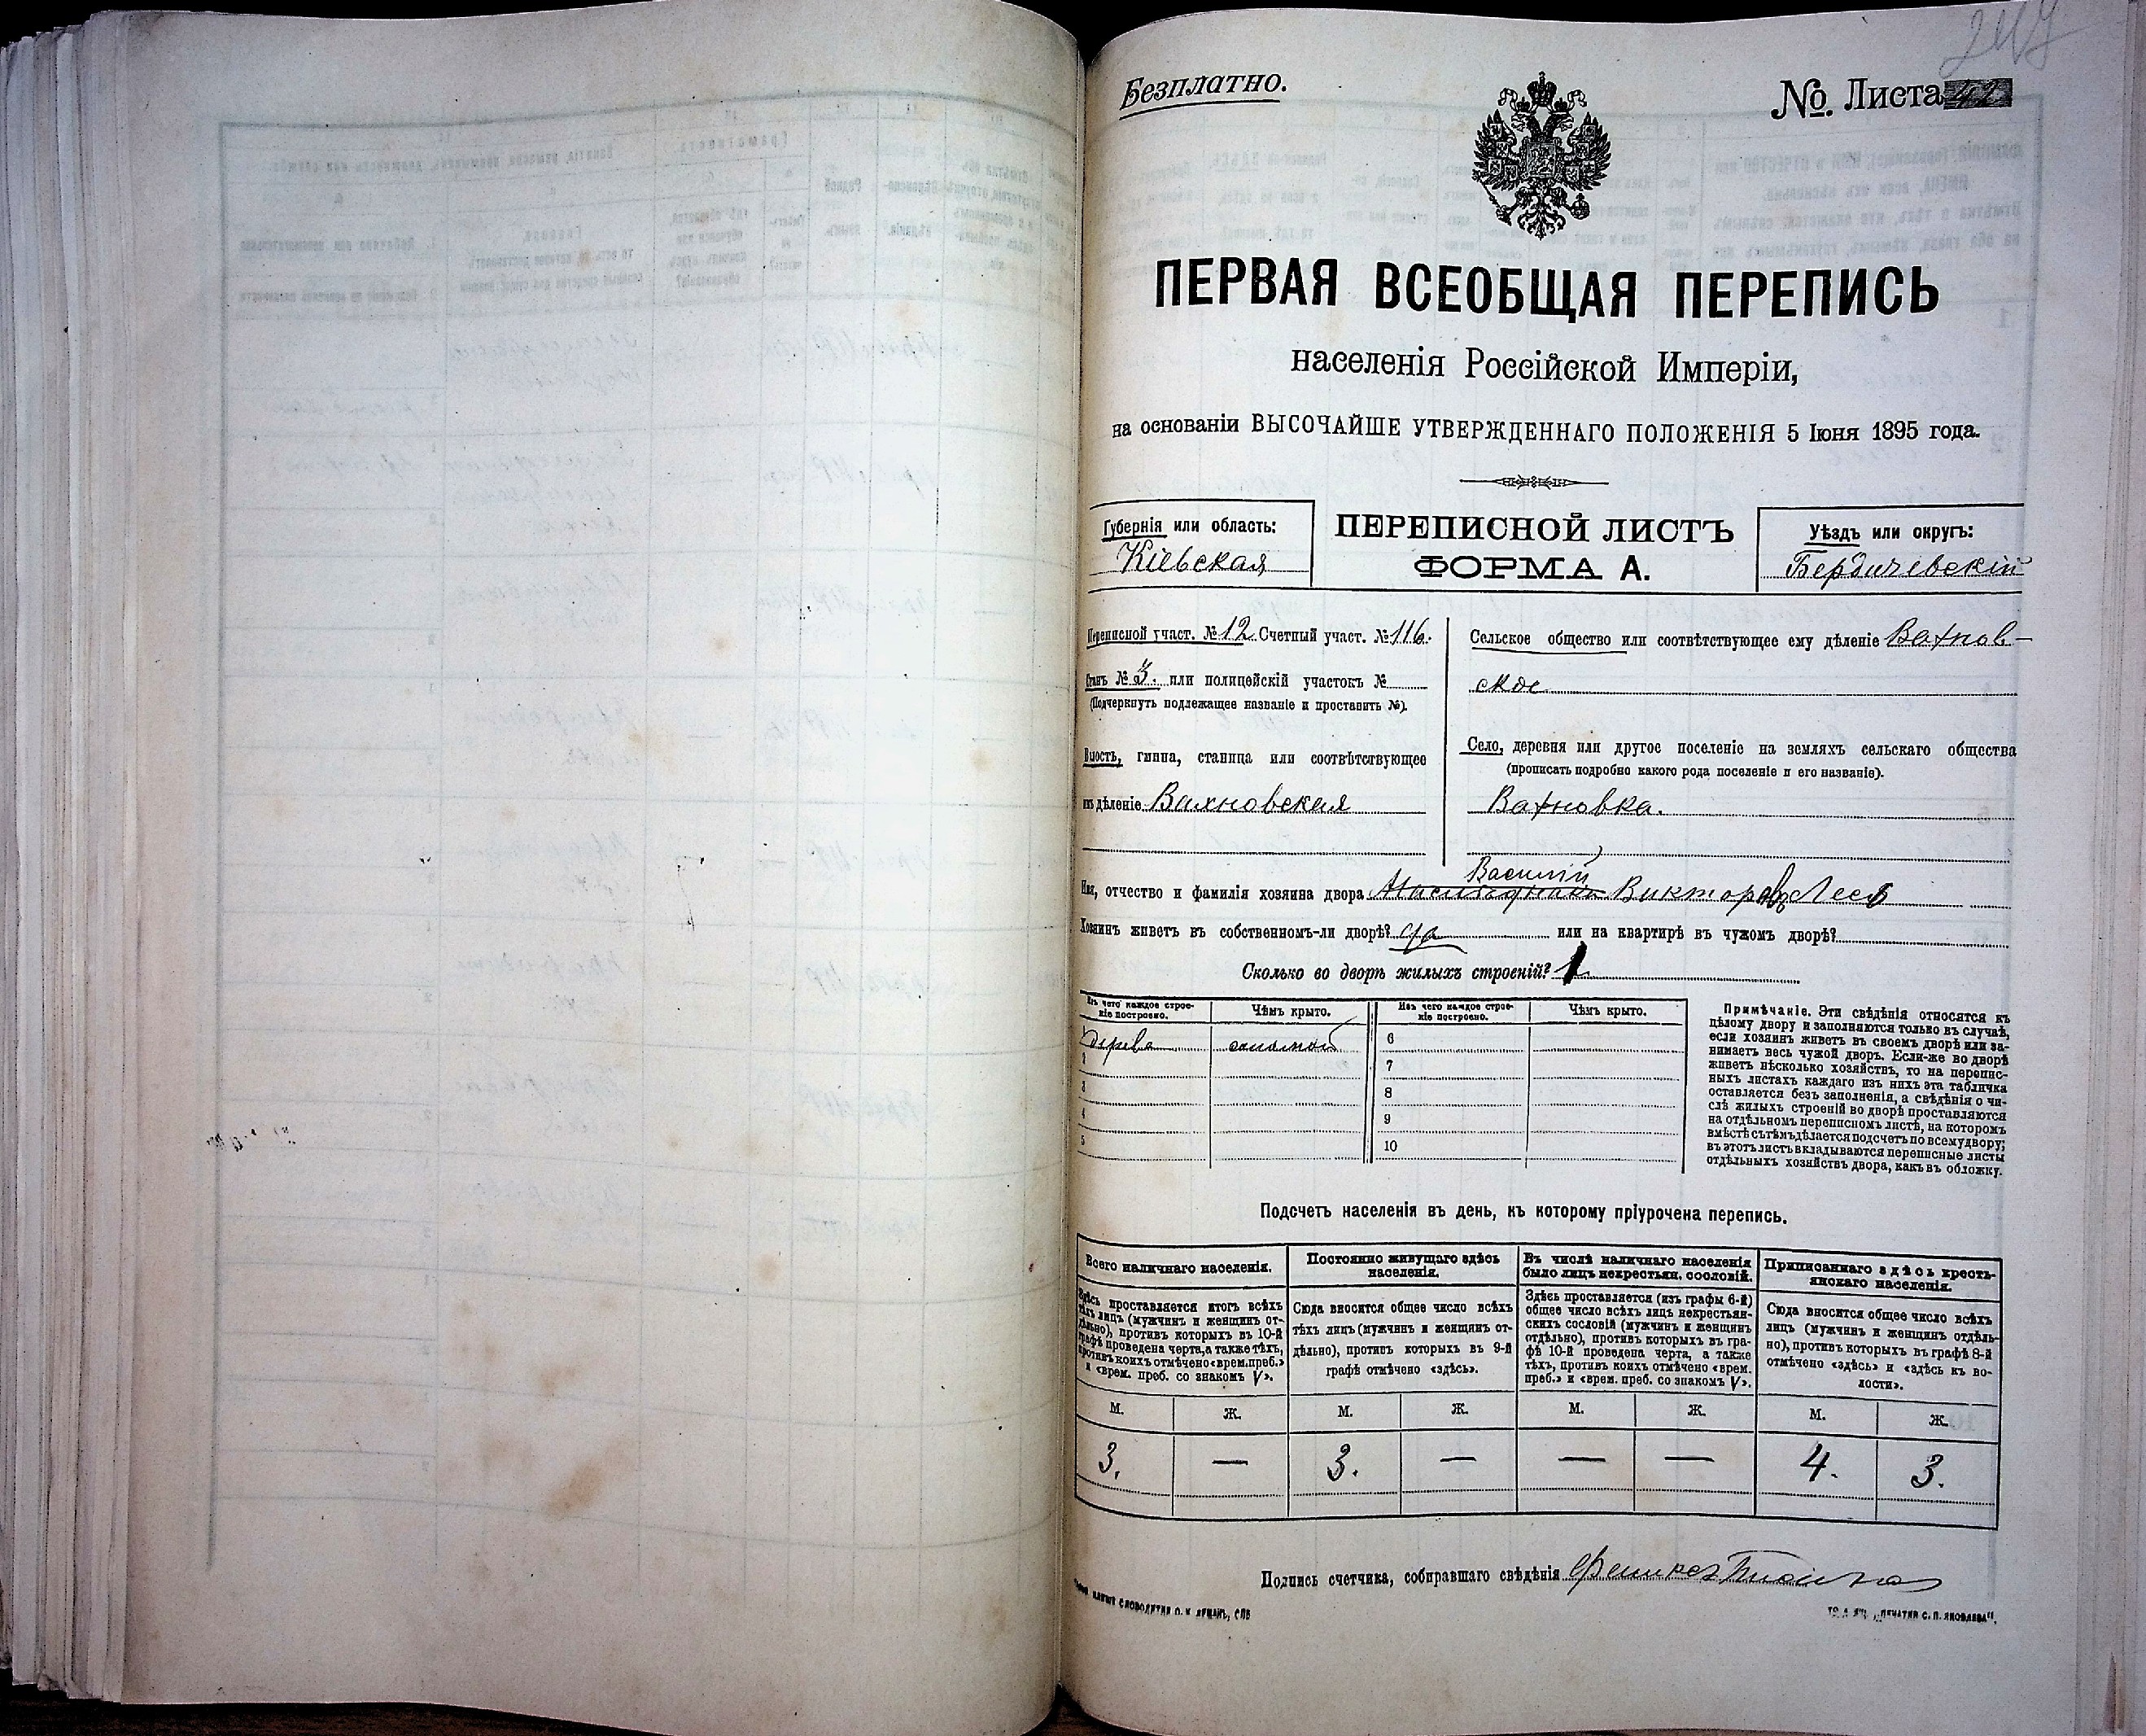 247
Безплатно.
№ Листа 42
ПЕРВАЯ ВСЕОБЩАЯ ПЕРЕПИСЬ
населенія Россійской Имперіи,
на основаніи ВЫСОЧАЙШЕ УТВЕРЖДЕННАГО ПОЛОЖЕНІЯ 5 Іюня 1895 года.
Губернія или область:
Кіевская
ПЕРЕПИСНОЙ ЛИСТЪ
ФОРМА А.
Уѣздъ или округъ:
Бердичевскій
Переписной участ. № 12 Счетный участ. № 116.
Станъ № 3. или полицейскій участокъ №
(Подчеркнуть подлежащее названіе и проставить №).
Волость, гмина, станица или соотвѣтствующее
имъ дѣленіе Вахновская
Сельское общество или соотвѣтствующее ему дѣленіе Вахнов-
ское
Село, деревня или другое поселеніе на земляхъ сельскаго общества
(прописать подробно какого рода поселеніе и его названіе).
Вахновка.
Василій
Имя, отчество и фамилія хозяина двора Викторовъ
Хозяинъ живетъ въ собственномъ-ли дворѣ? да или на квартирѣ въ чужомъ дворѣ?
Сколько во дворѣ жилыхъ строеній? 1
Изъ чего каждое строе-
ніе построено.
Чѣмъ крыто.
Изъ чего каждое строе-
ніе построено.
Чѣмъ крыто.
1 дерева соломой 6
2 7
3 8
4 9
5 10
Примѣчаніе. Эти свѣдѣнія относятся къ
цѣлому двору и заполняются только въ случаѣ,
если хозяинъ живетъ въ своемъ дворѣ или за-
нимаетъ весь чужой дворъ. Если-же во дворѣ
живетъ нѣсколько хозяйствъ, то на перепис-
ныхъ листахъ каждаго изъ нихъ эта табличка
оставляется безъ заполненія, а свѣдѣнія о чи-
слѣ жилыхъ строеній во дворѣ проставляются
на отдѣльномъ переписномъ листѣ, на которомъ
вмѣстѣ съ тѣмъ дѣлается подсчетъ по всему двору;
въ этотъ листъ вкладываются переписные листы
отдѣльныхъ хозяйствъ двора, какъ въ обложку.
Подсчетъ населенія въ день, къ которому пріурочена перепись.
Всего наличнаго населенія.
Здѣсь проставляется итогъ всѣхъ
тѣхъ лицъ (мужчинъ и женщинъ от-
дѣльно), противъ которыхъ въ 10-й
графѣ проведена черта, а также тѣхъ,
противъ коихъ отмѣчено «врем. преб.»
и «врем. преб. со знакомъ V».
Постоянно живущаго здѣсь
населенія.
Сюда вносится общее число всѣхъ
тѣхъ лицъ (мужчинъ и женщинъ от-
дѣльно), противъ которыхъ въ 9-й
графѣ отмѣчено «здѣсь».
Въ числѣ наличнаго населенія
было лицъ некрестьян. сословій.
Здѣсь проставляется (изъ графы 6-й)
общее число всѣхъ лицъ некрестьян-
скихъ сословій (мужчинъ и женщинъ
отдѣльно), противъ которыхъ въ гра-
фѣ 10-й проведена черта, а также
тѣхъ, противъ коихъ отмѣчено «врем.
преб.» и «врем. преб. со знакомъ V».
Приписаннаго здѣсь кресть-
янскаго населенія.
Сюда вносится общее число всѣхъ
лицъ (мужчинъ и женщинъ отдѣль-
но), противъ которыхъ въ графѣ 8-й
отмѣчено «здѣсь» и «здѣсь къ во-
лости».
М. Ж. М. Ж. М. Ж. М. Ж.
3. — 3. — — — 4. 3.
Подпись счетчика, собиравшаго свѣдѣнія